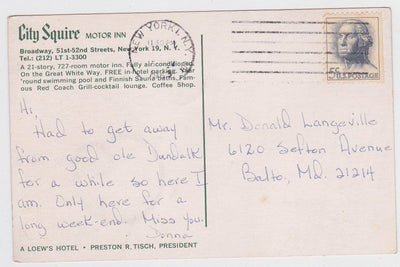 City Squire MOTOR INN
Broadway, 51st-52nd Streets, New York 19, N. Y.
Tel.: (212) LT 1-3300
A 21-story, 727-room motor inn. Fully air-conditioned.
On the Great White Way. FREE in-hotel parking. Year
'round swimming pool and Finnish Sauna baths. Fam-
ous Red Coach Grill-cocktail lounge. Coffee Shop.
NEW YORK 1, N.Y.
5¢ U.S. POSTAGE
Hi,
Had to get away
from good ole Dundalk
for a while so here I
am. Only here for a
long week-end. Miss you.
Donna
Mr. Donald Langeville
6120 Sefton Avenue
Balto, Md. 21214
A LOEW'S HOTEL • PRESTON R. TISCH, PRESIDENT